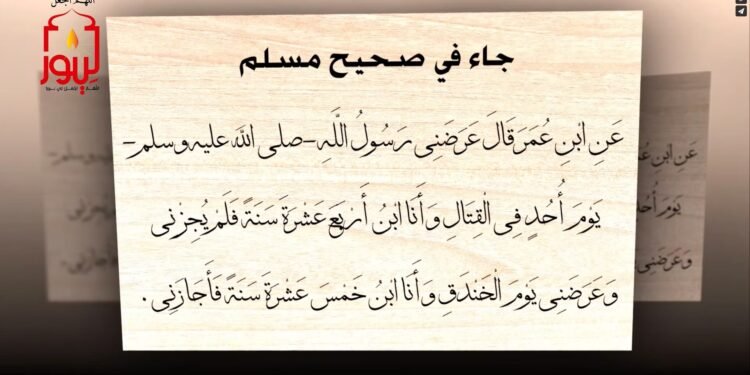 اللهم اجعل
جاء في صحيح مسلم
عَنِ ابْنِ عُمَرَ قَالَ عَرَضَنِى رَسُولُ اللَّهِ -صلى الله عليه وسلم-
يَوْمَ أُحُدٍ فِى الْقِتَالِ وَأَنَا ابْنُ أَرْبَعَ عَشْرَةَ سَنَةً فَلَمْ يُجِزْنِى
وَعَرَضَنِى يَوْمَ الْخَنْدَقِ وَأَنَا ابْنُ خَمْسَ عَشْرَةَ سَنَةً فَأَجَازَنِى .